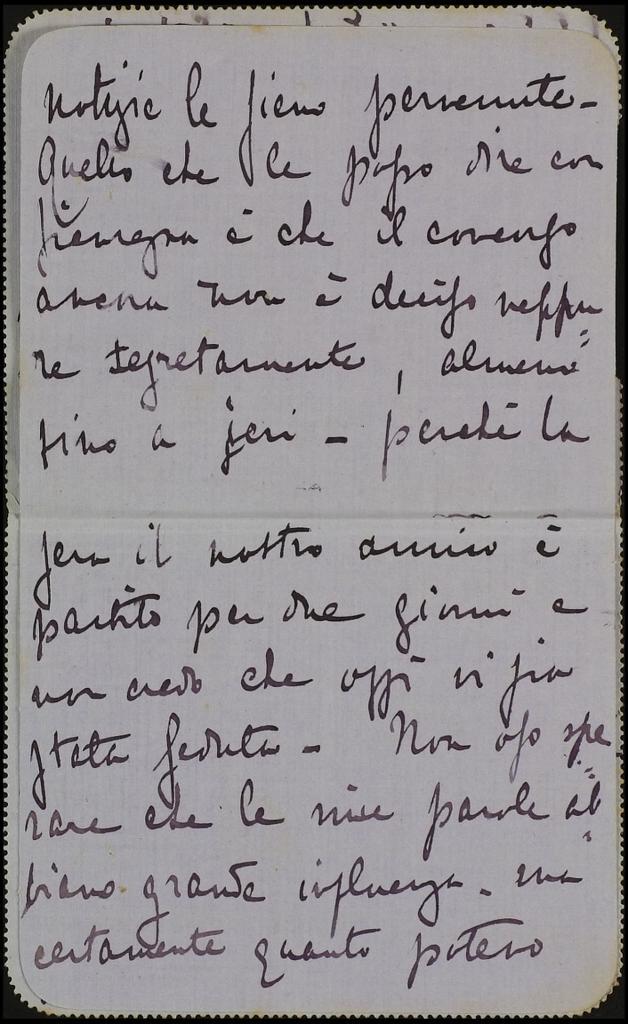 notizie le sieno pervenute -
Quello che le posso dire con
sicurezza è che il concorso
ancora non è deciso neppu=
re segretamente, almeno
fino a jeri - perchè la
sera il nostro amico è
partito per due giorni e
non credo che oggi vi sia
stata seduta - Non oso spe=
rare che le mie parole ab=
biano grande influenza - ma
certamente quanto potevo